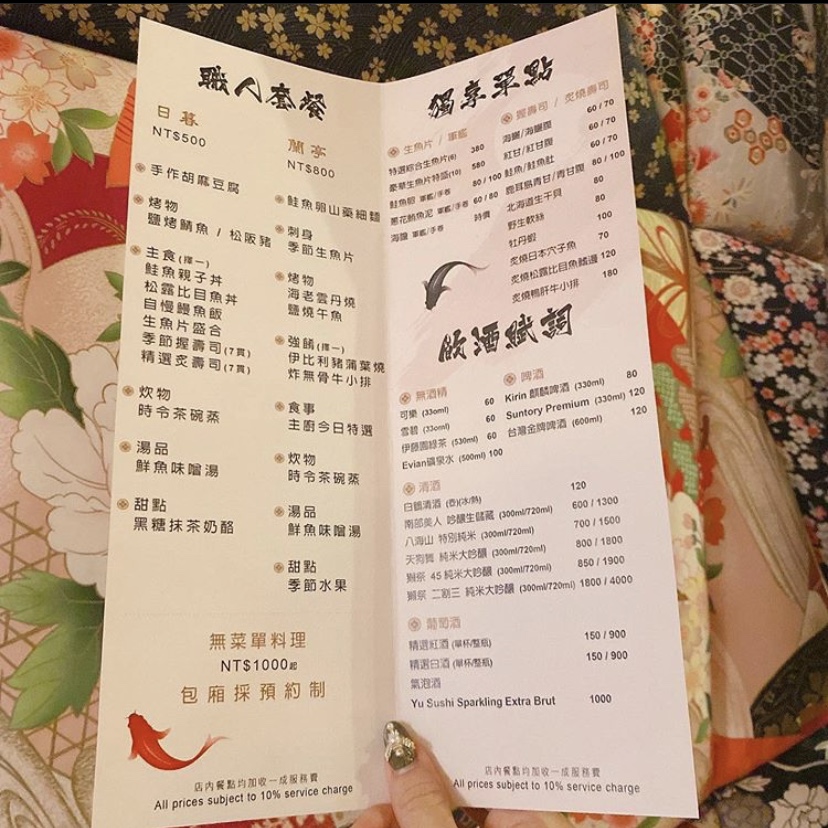 職人套餐
日暮
NT$500
手作胡麻豆腐
烤物
鹽烤鯖魚 / 松阪豬
主食(擇一)
鮭魚親子丼
松露比目魚丼
自慢鰻魚飯
生魚片盛合
季節握壽司(7貫)
精選炙壽司(7貫)
炊物
時令茶碗蒸
湯品
鮮魚味噌湯
甜點
黑糖抹茶奶酪
蘭亭
NT$800
鮭魚卵山藥細麵
刺身
季節生魚片
烤物
海老雲丹燒
鹽燒午魚
強餚(擇一)
伊比利豬蒲葉燒
炸無骨牛小排
食事
主廚今日特選
炊物
時令茶碗蒸
湯品
鮮魚味噌湯
甜點
季節水果
無菜單料理
NT$1000起
包廂採預約制
店內餐點均加收一成服務費
All prices subject to 10% service charge
獨享單點
生魚片 / 軍艦
特選綜合生魚片(6) 380
豪華生魚片特盛(10) 580
鮭魚卵 軍艦/手卷 80 / 100
蔥花鮪魚泥 軍艦/手卷 60 / 80
海膽 軍艦/手卷 時價
握壽司 / 炙燒壽司
海鱺/海鱺腹 60 / 70
紅甘/紅甘腹 60 / 70
鮭魚/鮭魚肚 60 / 70
鹿耳島青甘/青甘腹 80 / 100
北海道生干貝 80
野生軟絲 80
牡丹蝦 100
炙燒日本穴子魚 70
炙燒松露比目魚鰭邊 120
炙燒鴨肝牛小排 180
飲酒賦詞
無酒精
可樂 (330ml) 60
雪碧 (330ml) 60
伊藤園綠茶 (530ml) 60
Evian礦泉水 (500ml) 100
啤酒
Kirin 麒麟啤酒 (330ml) 80
Suntory Premium (330ml) 120
台灣金牌啤酒 (600ml) 120
清酒
白鶴清酒 (壺)(冰/熱) 120
南部美人 吟釀生儲藏 (300ml/720ml) 600 / 1300
八海山 特別純米 (300ml/720ml) 700 / 1500
天狗舞 純米大吟釀 (300ml/720ml) 800 / 1800
獺祭 45 純米大吟釀 (300ml/720ml) 850 / 1900
獺祭 二割三 純米大吟釀 (300ml/720ml) 1800 / 4000
葡萄酒
精選紅酒 (單杯/整瓶) 150 / 900
精選白酒 (單杯/整瓶) 150 / 900
氣泡酒
Yu Sushi Sparkling Extra Brut 1000
店內餐點均加收一成服務費
All prices subject to 10% service charge